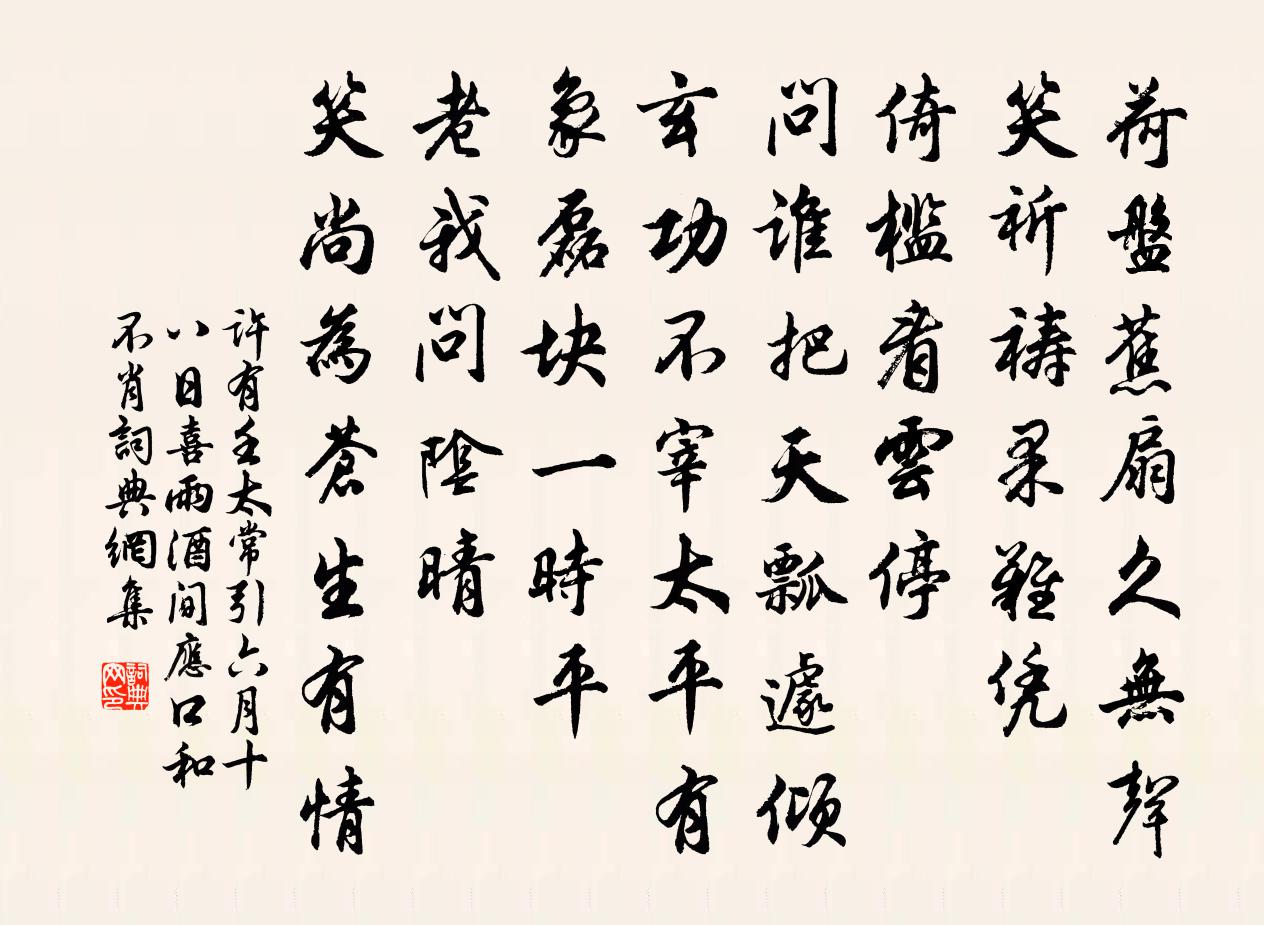 荷盤蕉扇久無聲
笑祈禱柔難凭
倚檻看雲停
問誰把天瓢遽倾
玄功不宰太平有
象磊块一時平
老我問陰晴
笑尚為蒼生有情
許有壬太常引六月十
八日喜雨酒间應口和
不肖詞典網集
詞典网印